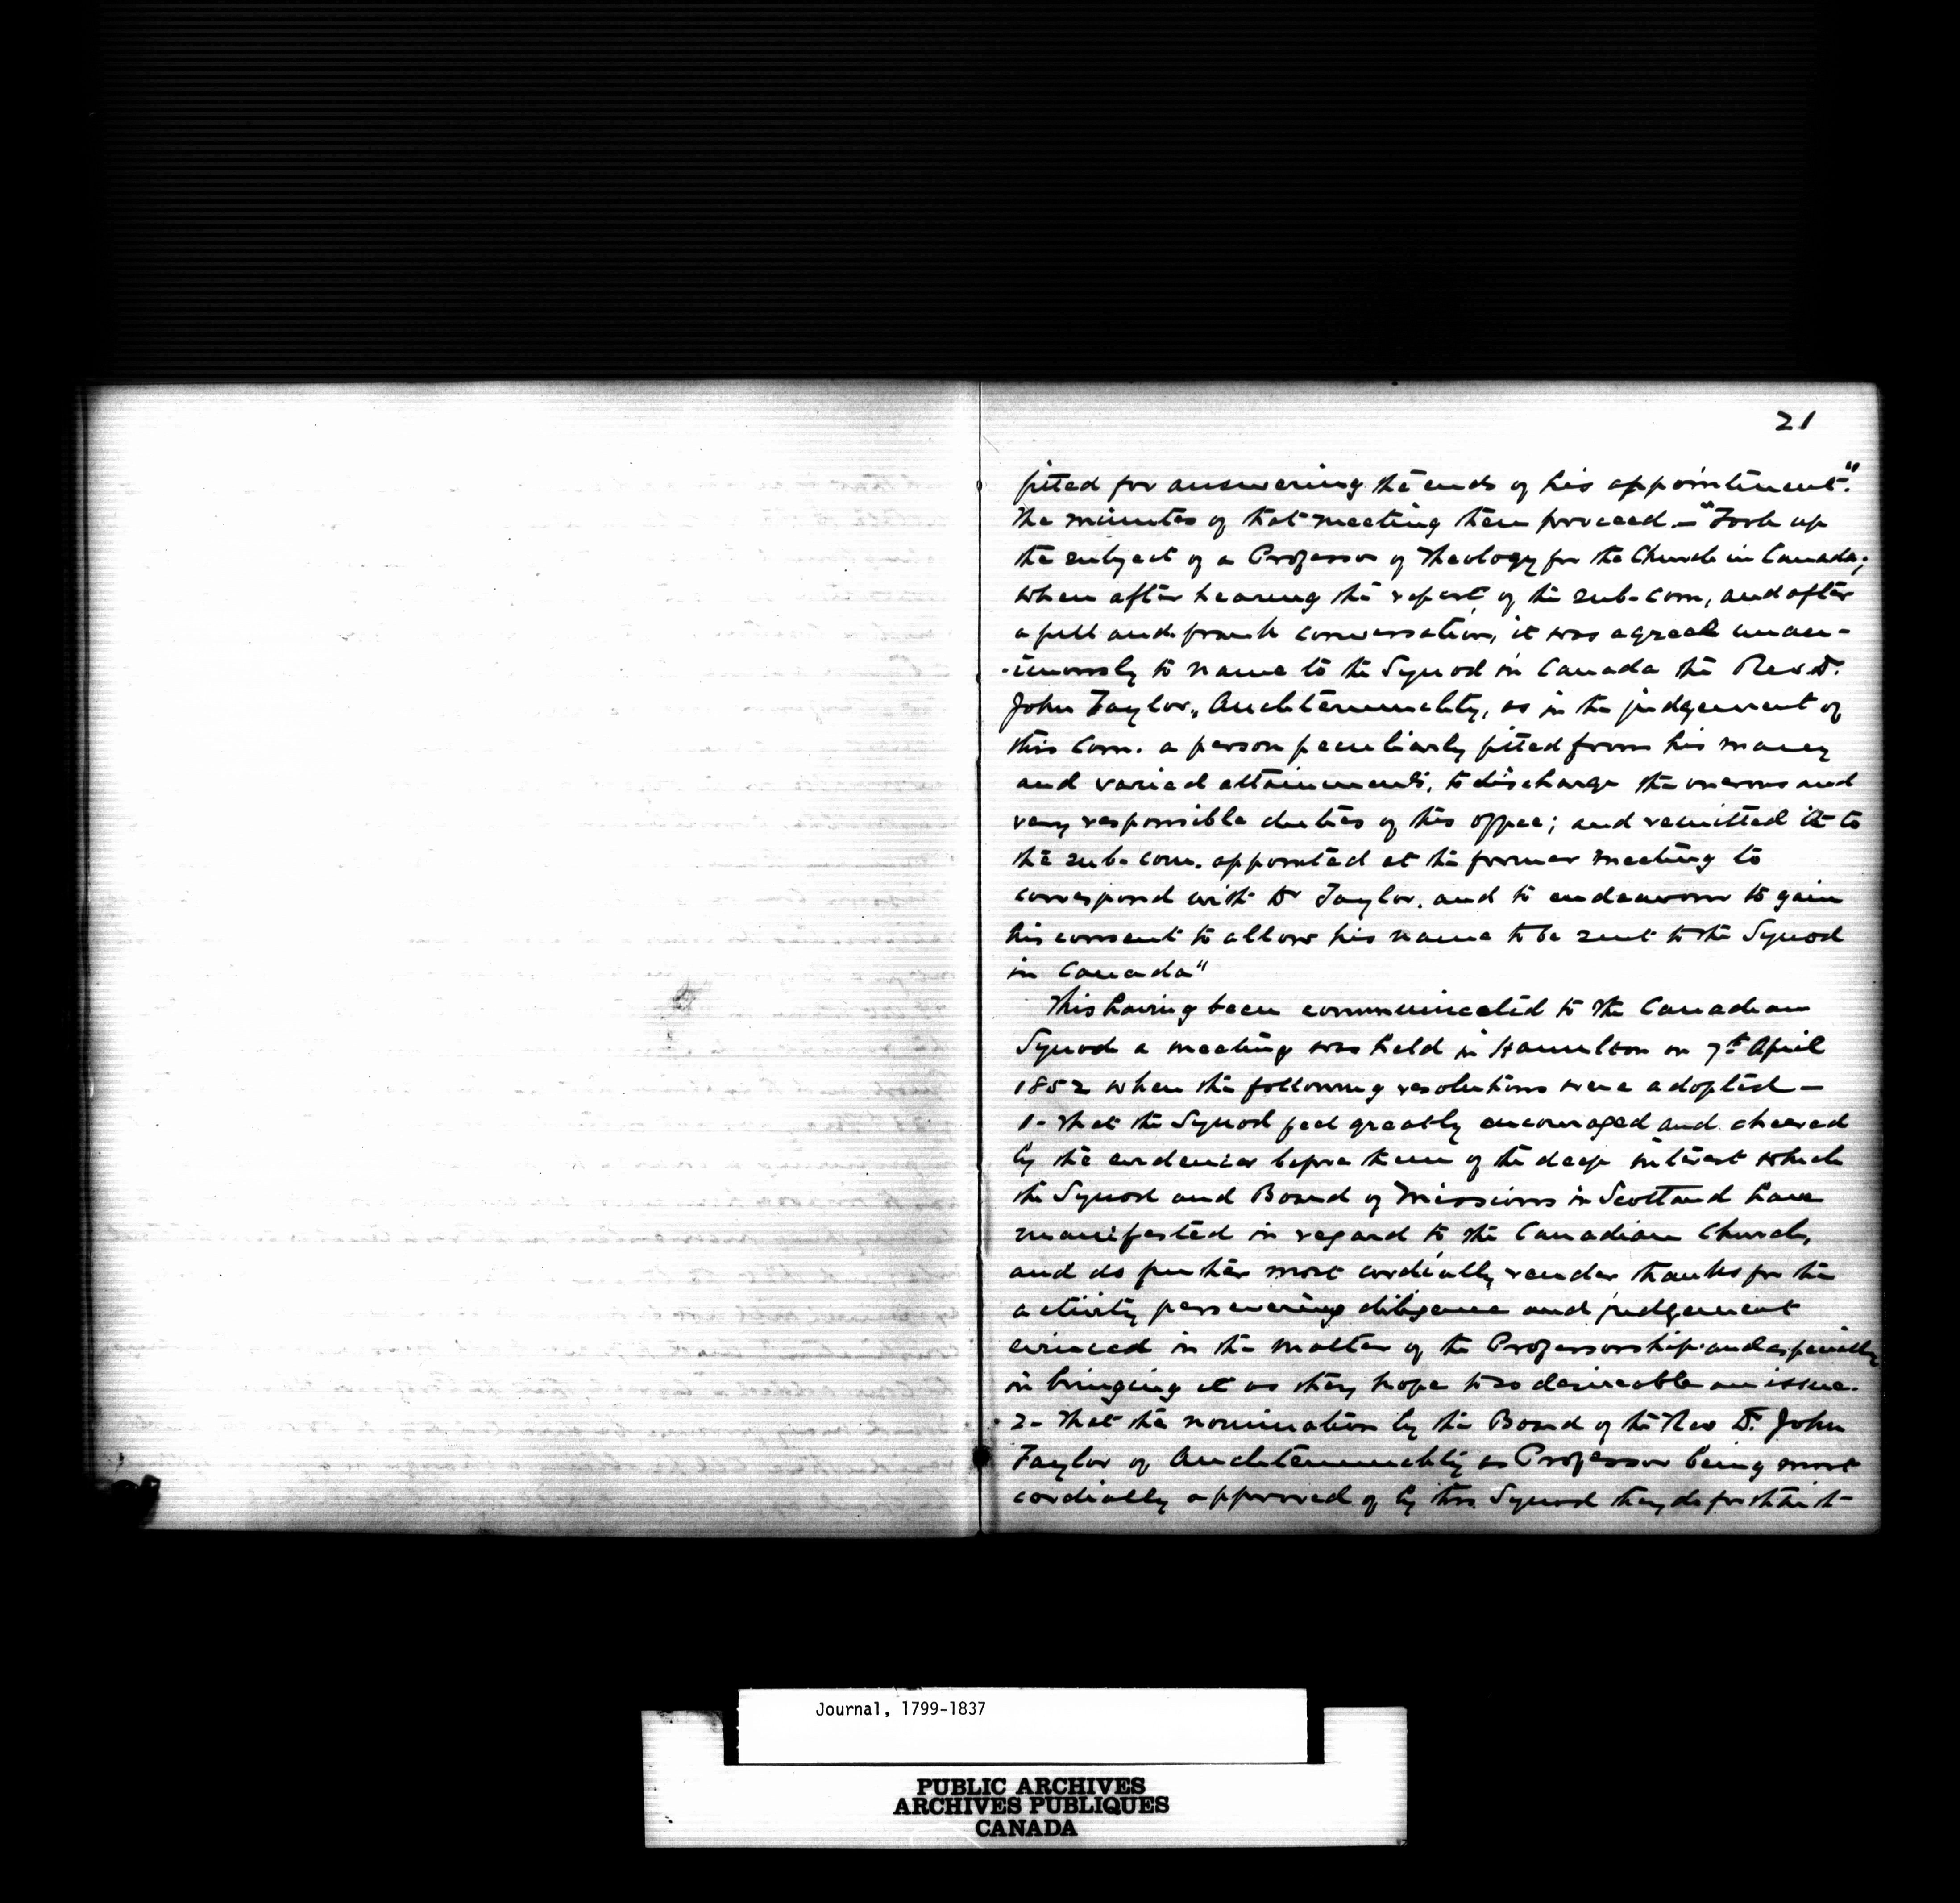 21
fitted for answering the ends of his appointment."
The minutes of that meeting then proceed - "Took up
the subject of a Professor of Theology for the Church in Canada;
when after hearing the report of the sub-com, and after
a full and frank conversation, it was agreed unan-
-imously to name to the Synod in Canada the Rev Dr.
John Taylor, Auchtermuchty, as in the judgement of
this Com. a person peculiarly fitted from his many
and varied attainments, to discharge the onerous and
very responsible duties of this office; and remitted it to
the sub-com. appointed at the former meeting to
correspond with Dr Taylor, and to endeavour to gain
his consent to allow his name to be sent to the Synod
in Canada"
This having been communicated to the Canadian
Synod a meeting was held in Hamilton on 7th April
1852 when the following resolutions were adopted -
1 - That the Synod feel greatly encouraged and cheered
by the evidences before them of the deep interest which
the Synod and Board of Missions in Scotland have
manifested in regard to the Canadian Church,
and do further most cordially render thanks for the
activity persevering diligence and judgement
evinced in the matter of the Professorship and especially
in bringing it as they hope to so desireable an issue.
2 - That the nomination by the Board of the Rev Dr. John
Taylor of Auchtermuchty as Professor being most
cordially approved of by this Synod they do forthwith
Journal, 1799-1837
PUBLIC ARCHIVES
ARCHIVES PUBLIQUES
CANADA